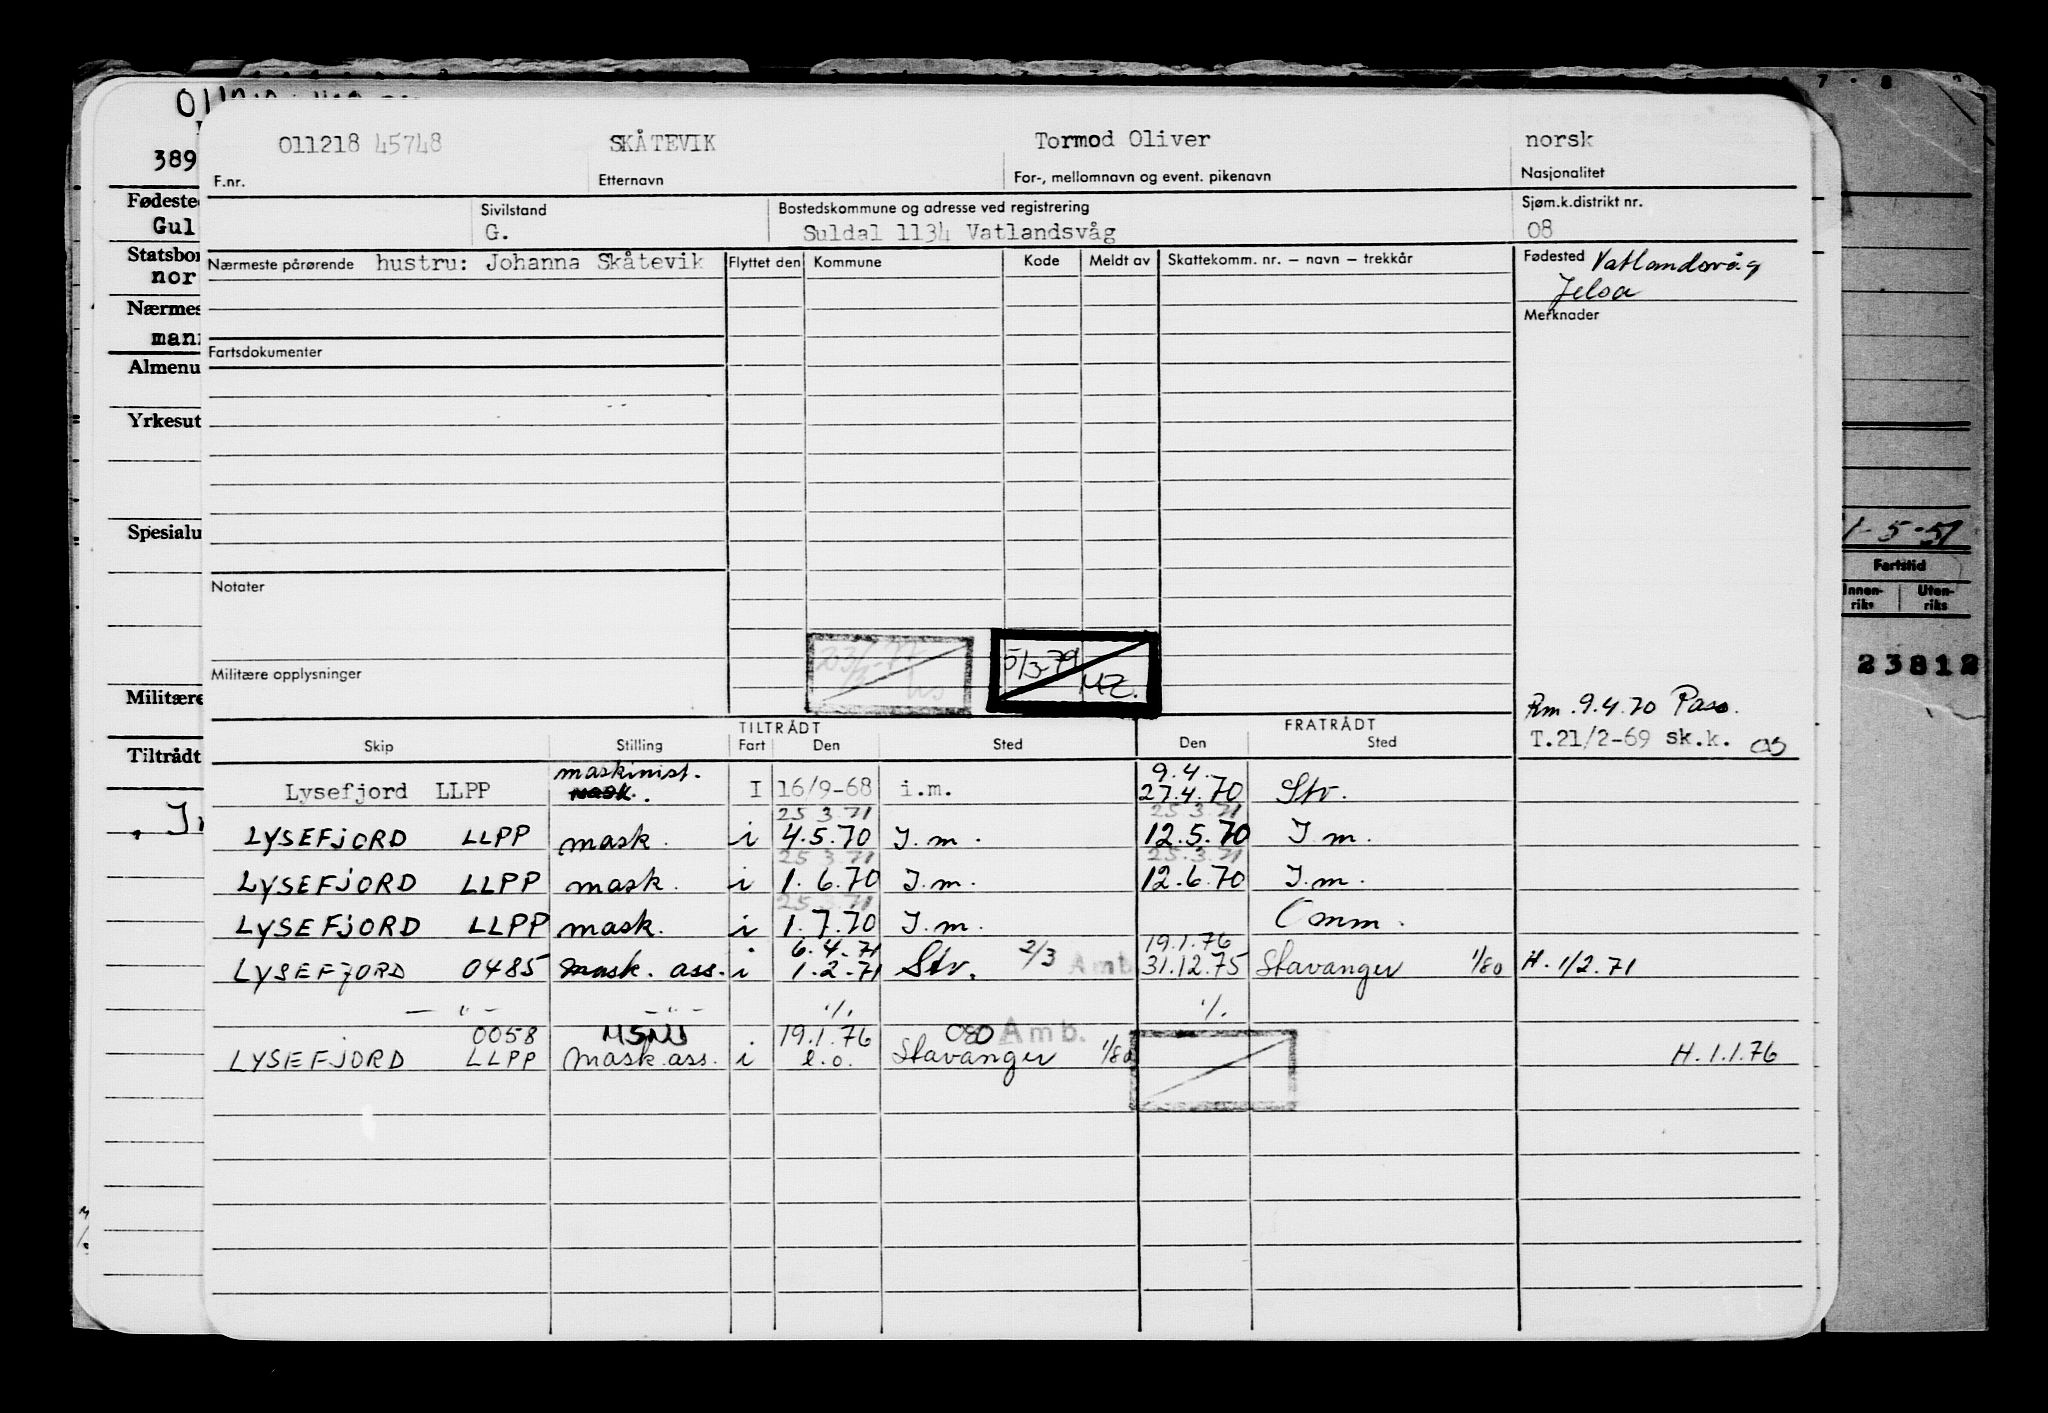 011218 45748 SKÅTEVIK Tormod Oliver norsk
F.nr. Etternavn For-, mellomnavn og event. pikenavn Nasjonalitet
Sivilstand Bostedskommune og adresse ved registrering Sjøm.k.distrikt nr.
G. Suldal 1134 Vatlandsvåg 08
Nærmeste pårørende hustru: Johanna Skåtevik Flyttet den Kommune Kode Meldt av Skattekomm. nr. – navn – trekkår Fødested Vatlandsvåg
Jelsa
Merknader
Fartsdokumenter
Notater
Militære opplysninger
5/3-79
Rm. 9.4.70 Pass.
T.21/2-69 sk.k.
TILTRÅDT FRATRÅDT
Skip Stilling Fart Den Sted Den Sted
maskinist. 9.4.
Lysefjord LLPP mask. I 16/9-68 i.m. 27.4.70 Stv.
25 3.71 25 3.71
LYSEFJORD LLPP mask. i 4.5.70 I.m. 12.5.70 I.m.
25 3.71 25.3.71
LYSEFJORD LLPP mask. i 1.6.70 I.m. 12.6.70 I.m.
25.3.71
LYSEFJORD LLPP mask. i 1.7.70 I.m. Omm.
6.4.71 19.1.76
LYSEFJORD 0485 mask. ass. i 1.2.71 Stv. 2/3 Amb 31.12.75 Stavanger 1/80 H. 1/2.71
— " — — " — ·/. ·/.
0058 19.1.76 080 Amb.
LYSEFJORD LLPP mask.ass. i l.o. Stavanger 1/80 H.1.1.76
389
Fødeste
Gul
Statsbor
nor
Nærmes
man
Almenu
Yrkesut
Spesialu
Militære
Tiltrådt
7 · 8
1-5-51
Fartstid
Innen-riks Uten-riks
23812